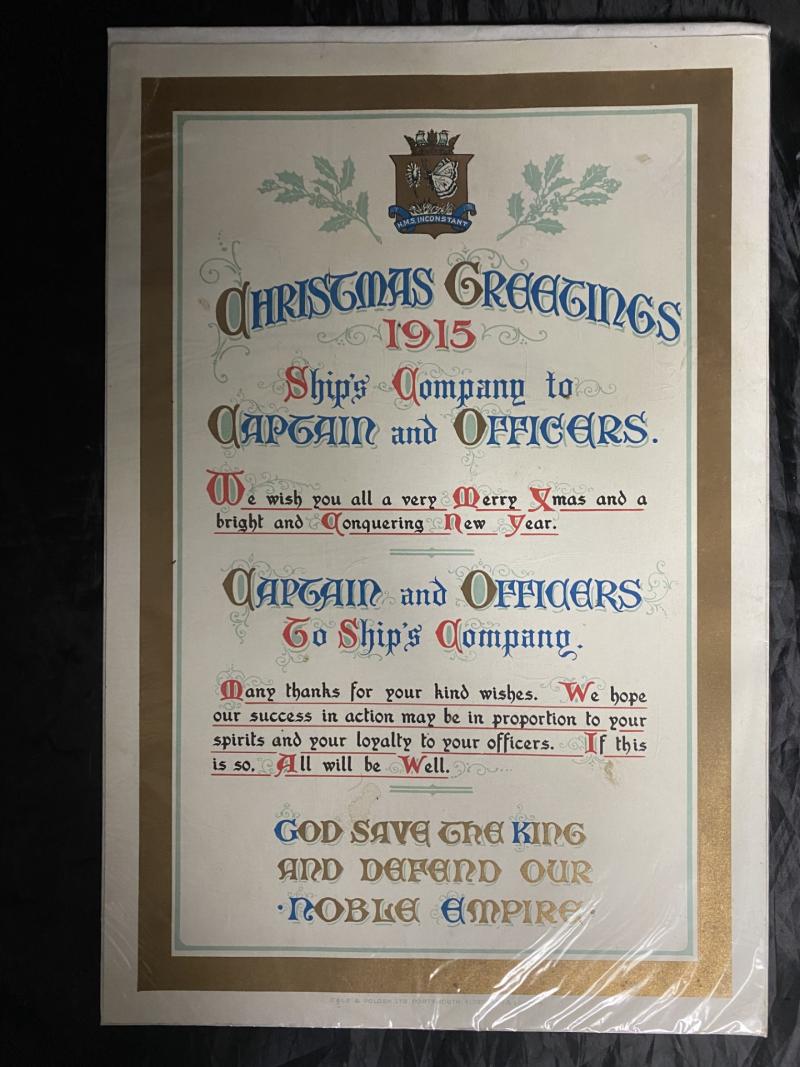 H.M.S. INCONSTANT
CHRISTMAS GREETINGS
1915
Ship's Company to
CAPTAIN and OFFICERS.
We wish you all a very Merry Xmas and a
bright and Conquering New Year.
CAPTAIN and OFFICERS
To Ship's Company.
Many thanks for your kind wishes. We hope
our success in action may be in proportion to your
spirits and your loyalty to your officers. If this
is so. All will be Well.
GOD SAVE THE KING
AND DEFEND OUR
·NOBLE EMPIRE·
GALE & POLDEN LTD PORTSMOUTH